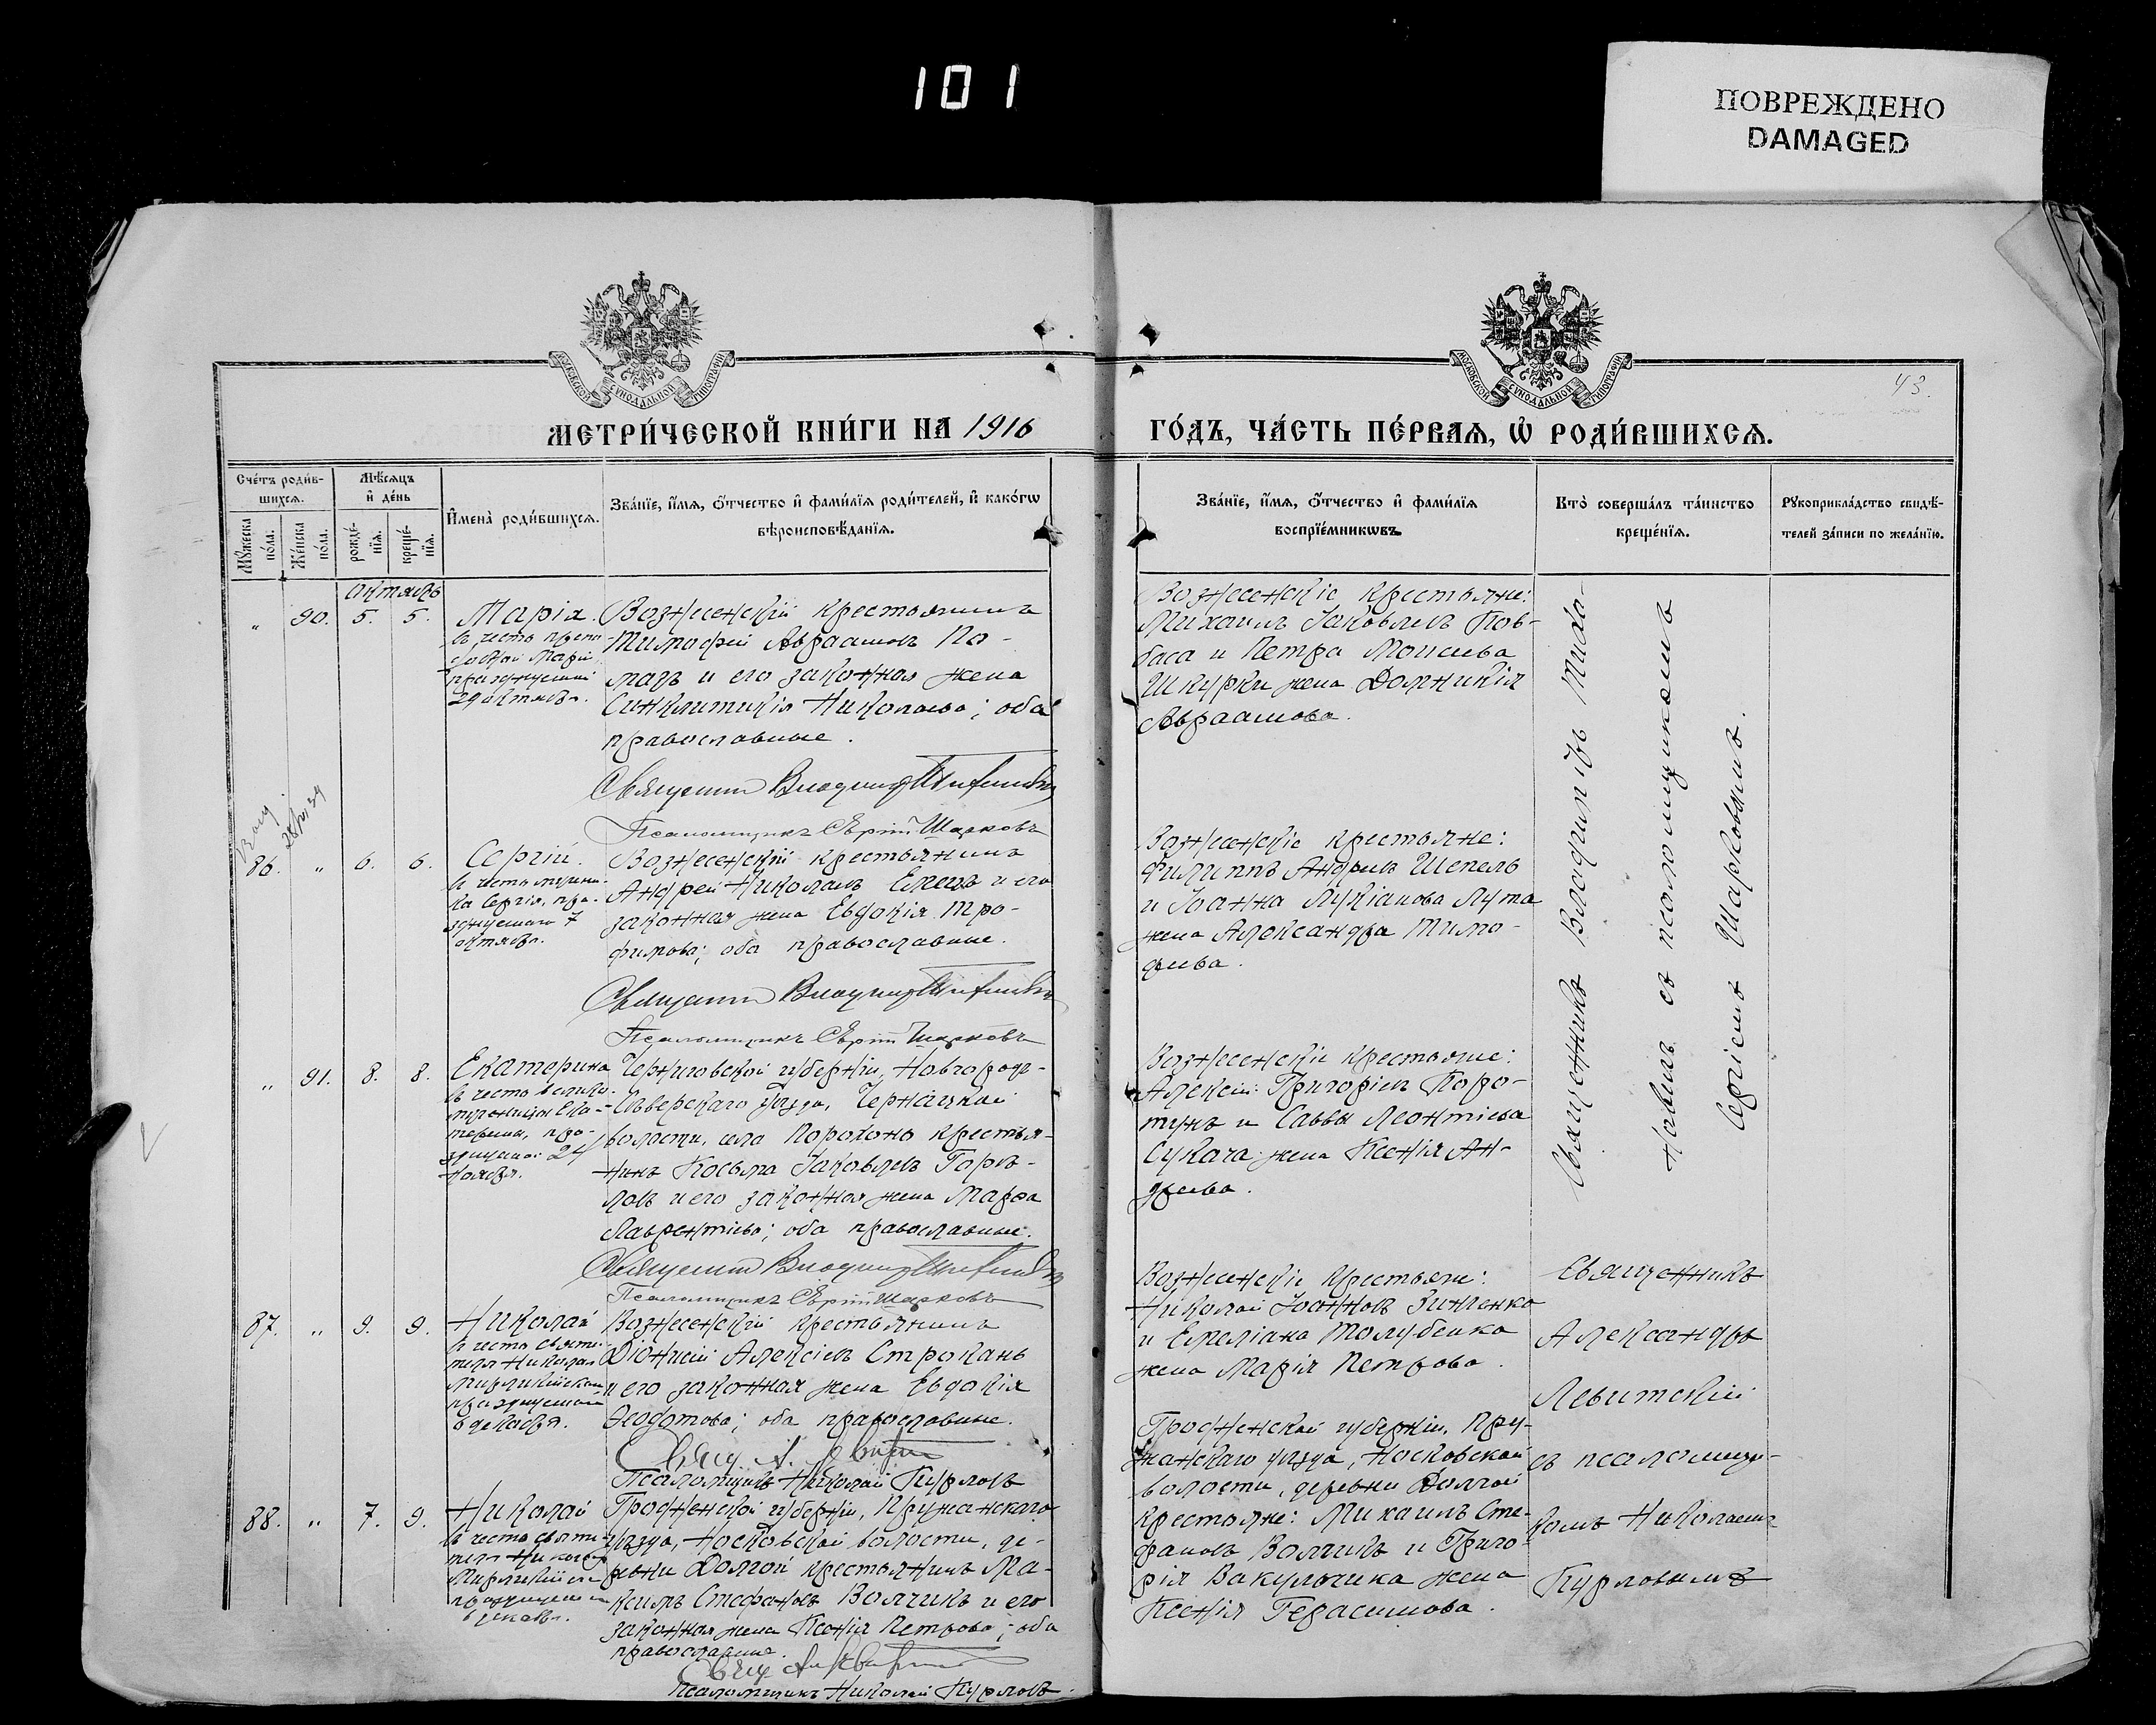 101
ПОВРЕЖДЕНО
DAMAGED
МОСКОВСКОЙ СѴНОДАЛЬНОЙ ТИПОГРАФІИ
МОСКОВСКОЙ СѴНОДАЛЬНОЙ ТИПОГРАФІИ
43.
МЕТРИ́ЧЕСКОЙ КНИ́ГИ НА 1916
ГО́ДЪ, ЧА́СТЬ ПЕ́РВАѦ, Ѡ҆ РОДИ́ВШИХСѦ.
Сче́тъ роди́в-
шихсѧ.
Мꙋ́жеска по́ла.
Же́нска по́ла.
Мѣ́сѧцъ
и҆ де́нь
рожде́-
нїѧ.
креще́-
нїѧ.
И҆мена̀ роди́вшихсѧ.
Зва́нїе, и҆́мѧ, ѻ҆́тчество и҆ фами́лїѧ роди́телей, и҆ како́гѡ
вѣроисповѣ́данїѧ.
Зва́нїе, и҆́мѧ, ѻ҆́тчество и҆ фами́лїѧ
воспрїе́мникѡвъ.
Кто̀ соверша́лъ та́инство
креще́нїѧ.
Рꙋкоприкла́дство свидѣ́-
телей за́писи по жела́нїю.
октябрь
„ 90. 5. 5.
Марія
въ честь препо-
добной Маріи
празднуемой
29 октября.
Вознесенскій крестьянинъ
Тимофей Авраамовъ По-
мазъ и его законная жена
Синклитикія Николаева; оба
православные.
Священникъ Владимиръ
Псаломщикъ Сергій Шарковъ
Вознесенскіе крестьяне:
Михаилъ Іаковлевъ Ков-
баса и Петра Моисеева
Шкурки жена Домникія
Авраамова.
86. „ 6. 6.
Сергій.
въ честь мучени-
ка Сергія, пра-
зднуемаго 7
октября.
Вознесенскій крестьянинъ
Андрей Николаевъ Емецъ и его
законная жена Евдокія Тро-
фимова; оба православные.
Священникъ Владимиръ
Псаломщикъ Сергій Шарковъ
Вознесенскіе крестьяне:
Филиппъ Андреевъ Шепель
и Іоанна Лукіанова Лута
жена Александра Тимо-
феева.
„ 91. 8. 8.
Екатерина
въ честь велико-
мученицы Ека-
терины, пра-
зднуемой 24
ноября.
Черниговской губерніи, Новгородъ-
Сѣверскаго уѣзда, Чернацкой
волости, села Порохонь крестья-
нинъ Косьма Іаковлевъ Горѣ-
ловъ и его законная жена Марфа
Лаврентіева; оба православные.
Священникъ Владимиръ
Псаломщикъ Сергій Шарковъ
Вознесенскіе крестьяне:
Алексій Григоріевъ Коро-
тунъ и Саввы Леонтіева
Сукача жена Ксенія Ан-
дреева.
Священникъ Владиміръ
съ псаломщикомъ
Сергіемъ Шарковымъ.
87. „ 9. 9.
Николай
въ честь святи-
теля Николая
Мирликійскаго
празднуемаго
6 декабря.
Вознесенскій крестьянинъ
Діонисій Алексіевъ Строкань
и его законная жена Евдокія
Ѳеодотова; оба православные.
Свящ. А. Левитскій
Псаломщикъ Николай Курловъ
Вознесенскіе крестьяне:
Николай Іоанновъ Зинченко
и Емеліана Толубенка
жена Марія Петрова.
Священникъ
Александръ
Левитскій
съ псаломщи-
комъ Николаемъ
Курловымъ
88. „ 7. 9.
Николай
въ честь святи-
теля Николая
Мирликійскаго
празднуемаго
6 декабря.
Гродненской губерніи, Пружанскаго
уѣзда, Носковской волости, де-
ревни Долгой крестьянинъ Ма-
ксимъ Стефановъ Волчикъ и его
законная жена Ксенія Петрова; оба
православные.
Свящ. А. Левитскій
Псаломщикъ Николай Курловъ.
Гродненской губерніи, Пру-
жанскаго уѣзда, Носковской
волости, деревни Долгой
крестьяне: Михаилъ Сте-
фановъ Волчикъ и Григо-
рія Вакульчика жена
Ксенія Герасимова.